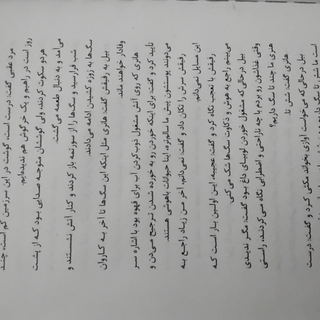 مرد عقبی گفت: درست است، گوشت در این سرزمین کم است، چند
روز است در راهیم و یک خرگوش هم ندیده‌ایم.
هردو سکوت کردند، ولی گوششان متوجه صدایی بود که از پشت
می‌آمد و به دنبال طعمه می‌گشت.
شب فرارسید و سگ‌ها را از سورتمه باز کردند و کنار آتش نشستند و
سگ‌ها به زوزه کشیدن ادامه می‌دادند.
بیل به رفیقش گفت: هانری مثل اینکه این سگ‌ها تا آخر به کاروان
وفادار خواهند ماند.
هانری که روی آتش مشغول ذوب‌کردن آب برای قهوه بود با اشاره سر
تأیید کرد و گفت: برای اینکه خوردن رو به خورده شدن ترجیح می‌دن و
می‌دونند پوستشون پیش ما سالم‌تره، اینا حیوانات باهوشی هستند.
رفیقش سرش را تکان داد و گفت: نمی‌دانم، آخر من زیاد راجع به
این مسایل نمی‌دانم.
رفیقش با تعجب نگاه کرد و گفت: عجیبه، این اولین بار است که
می‌بینم راجع به هوش و ذکاوت سگ‌ها شک می‌کنی.
بیل درحالی‌که مشغول خوردن لوبیای داغ بود گفت: مگر ندیدی
وقتی غذاشون رو بردم با چه ناراحتی و اضطرابی نگاه می‌کردند، راستی
هنری ما چند تا سگ داریم؟
هانری گفت: شش تا.
بیل درحالی‌که می‌خواست آوازی بخواند مکثی کرد و گفت: درست است
ما شش تا سگ داریم